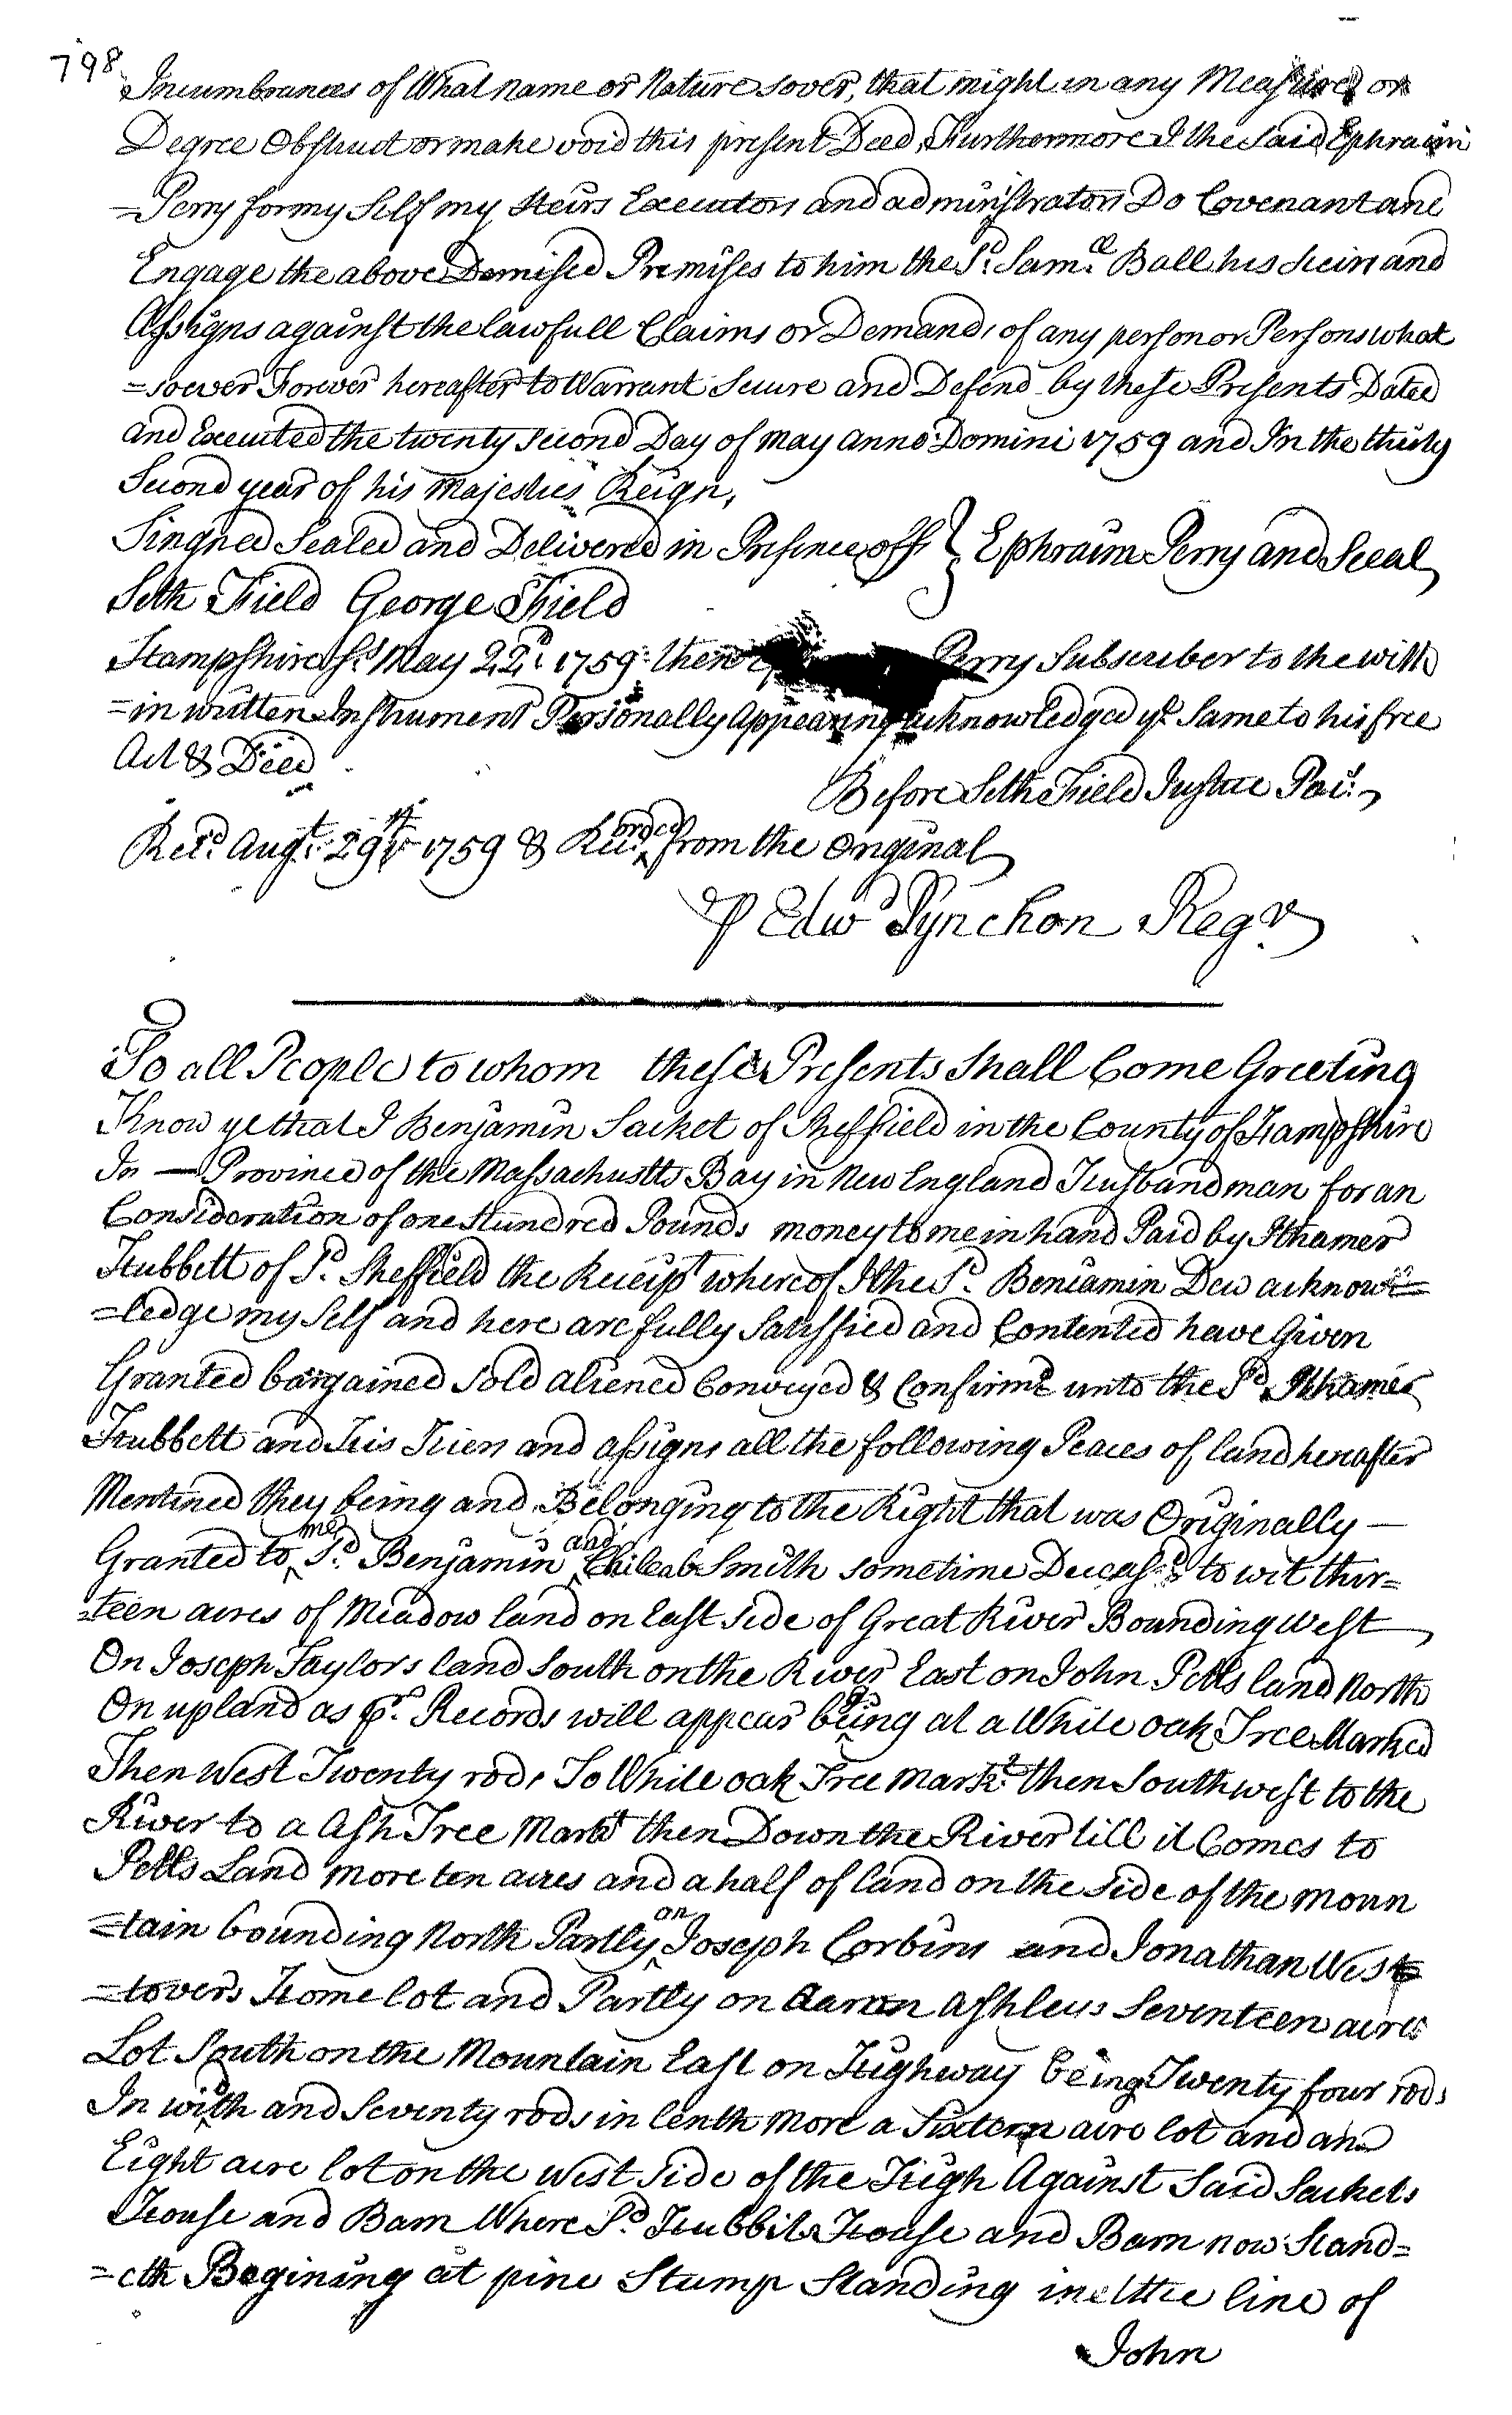 798
Incumbrances of What name or Nature sover, that might in any Measure or
Degree Obstruct or make void this present Deed, Furthermore I the Said Ephraim
=Perry for my Self my Heirs Executors and administrators Do Covenant and
Engage the above Demised Premises to him the Sd. Saml. Ball his heirs and
Assigns against the lawfull Claims or Demands of any person or Persons what
=soever Forever hereafter to Warrant Secure and Defend by these Presents Dated
and Executed the twenty second Day of May anno: Domini 1759 and In the thirty
Second year of his Majesties Reign,
Singned Sealed and Delivered in Presence off } Ephraim Perry and Seal
Seth Field George Field
Hampshire Ss. May 22d. 1759: then Perry Subscriber to the with
=in written Instrument Personally Appearing acknowledged ye. Same to his free
Act & Deed
Before Seth Field Justice Pac.
Recd. Augt. 29th 1759 & Recorded from the Original
P Edwd Pynchon Regr
To all People to whom these Presents Shall Come Greeting
Know ye that I Benjamin Sacket of Sheffield in the County of Hampshire
In — Province of the Massachustts Bay in New England Husbandman for an
Consideration of one Hundred Pounds money to me in hand Paid by Ithamer
Hubbett of Sd. Sheffield the Receipt whereof I the Sd. Beniamin Dew acknow=
=ledge my Self and here are fully Sattsfied and Contented have Given
Granted bargained Sold aliened Conveyed & Confirmd unto the Sd Ithamer
Hubbett and His Hiers and assigns all the following Peaces of land herafter
Mentined they being and Belonging to the Right that was Originally —
Granted to me Sd. Benjamin and Chileab Smith sometime Deceasd to wit thir=
=teen acres of Meadow land on East Side of Great River Bounding West
On Joseph Taylors land South on the River East on John Petts land North
On upland as pr. Records will appear beging at a White oak Tree Marked
Then West Twenty rods To White oak Tree Markd then Southwest to the
River to a Ash Tree Markt then Down the River till it Comes to
Petts Land more ten acres and a half of land on the Side of the moun
=tain bounding North Partly on Joseph Corbins and Jonathan West
=tovers Home lot and Partly on Aaron Ashleus Seventeen aires
Lot South on the Mountain East on Highway being Twenty four rods
In width and Seventy rods in lenth More a Sixteen acre lot and an
Eight acre lot on the West Side of the High Against Said Sackets
House and Barn Where Sd. Hubbits House and Barn now Stand=
=eth Begining at pine Stump Standing in the line of
John